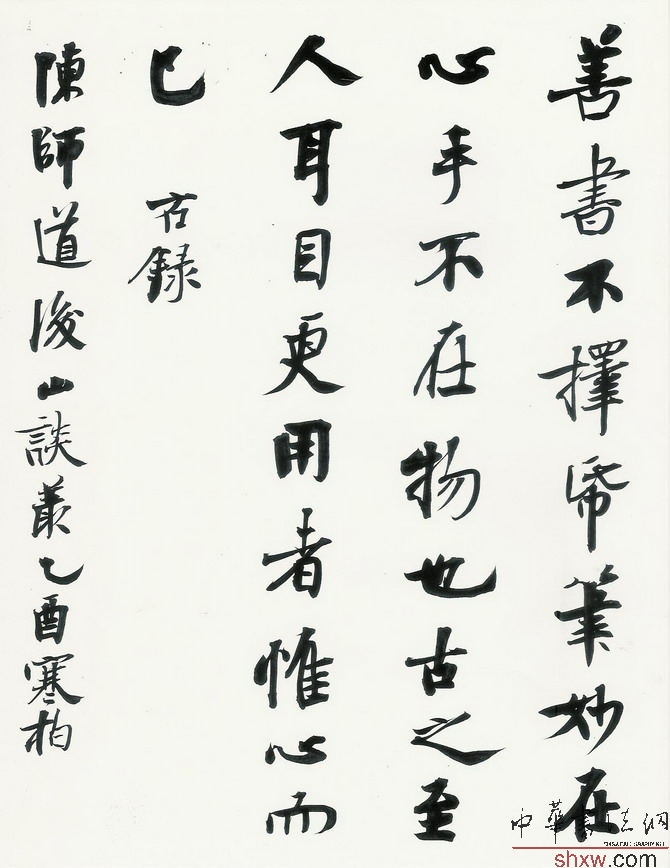 善書不擇帋筆妙在
心手不在物也古之至
人耳目更用者惟心而
已 古錄
陳師道後山談叢乙酉寒柏
中華書法網
shxw.com